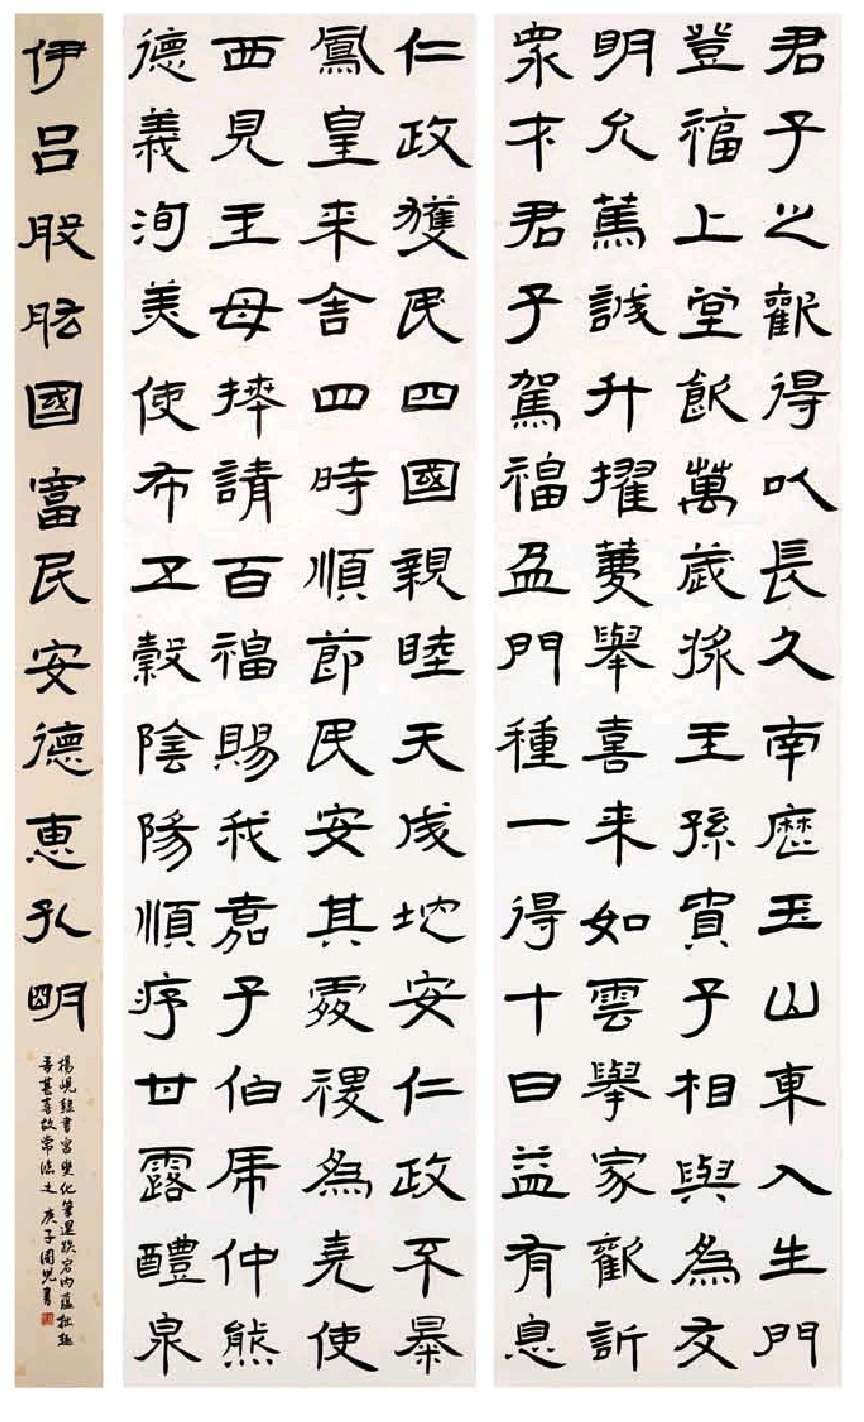 君子之歡得以長久南歷玉山東入生門
登福上堂飲萬歲漿王孫子相與為交
明允篤誠升擢舉喜來如雲舉家歡訢
眾才君子駕福盈門種一得十日益有息
仁政獲民四國親睦天成地安仁政不暴
鳳皇來舍四時順節民安其處稷為堯使
西見王母拜請百福賜我嘉子伯虎仲熊
德義洵美使布五穀陰陽順序甘露醴泉
伊呂股肱國富民安德惠孔明
楊峴隸書富變化筆跌宕內蘊拙趣
吾甚喜故常臨之 庚子國書